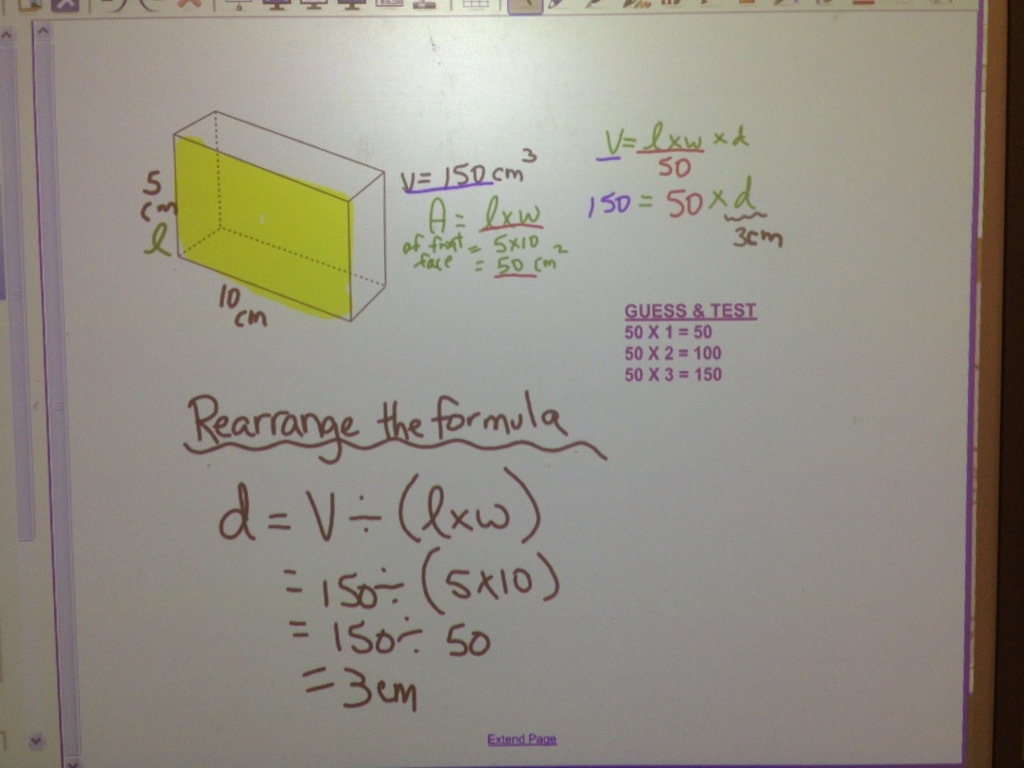 5
cm
l
10
cm
V = 150 cm³
A = l x w
of front = 5 x 10
face = 50 cm²
V = l x w x d
50
150 = 50 x d
3cm
GUESS & TEST
50 X 1 = 50
50 X 2 = 100
50 X 3 = 150
Rearrange the formula
d = V ÷ (l x w)
= 150 ÷ (5 x 10)
= 150 ÷ 50
= 3 cm
Extend Page